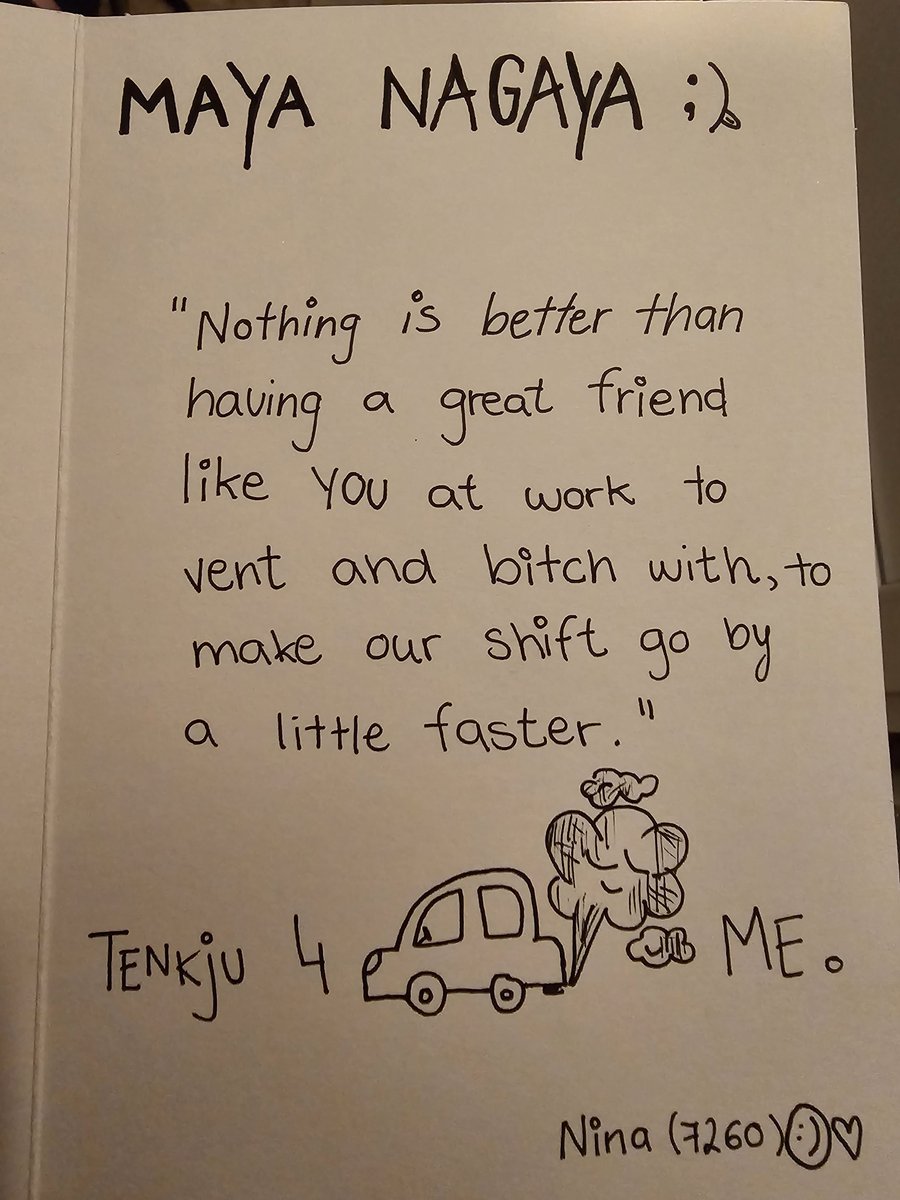 MAYA NAGAYA ;)
"Nothing is better than
having a great friend
like YOU at work to
vent and bitch with, to
make our shift go by
a little faster."
TENKjU 4 ME.
Nina (7260) :) ♡